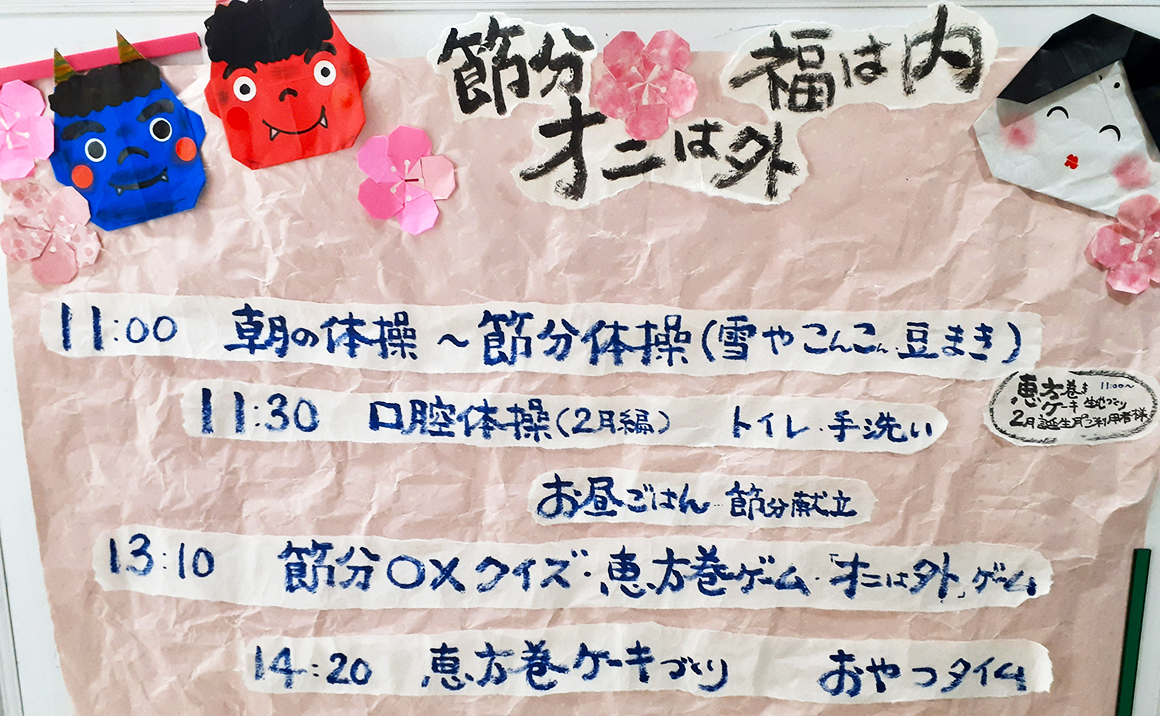 節分 福は内
オニは外
11:00 朝の体操～節分体操(雪やこんこん・豆まき)
11:30 口腔体操(2月編) トイレ・手洗い
恵方巻き 11:00～
ケーキ 生地づくり
2月誕生月ご利用者様
お昼ごはん…節分献立
13:10 節分〇×クイズ・恵方巻ゲーム・「オニは外」ゲーム
14:20 恵方巻ケーキづくり おやつタイム